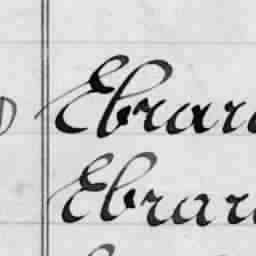 Ebrar
Ebrar